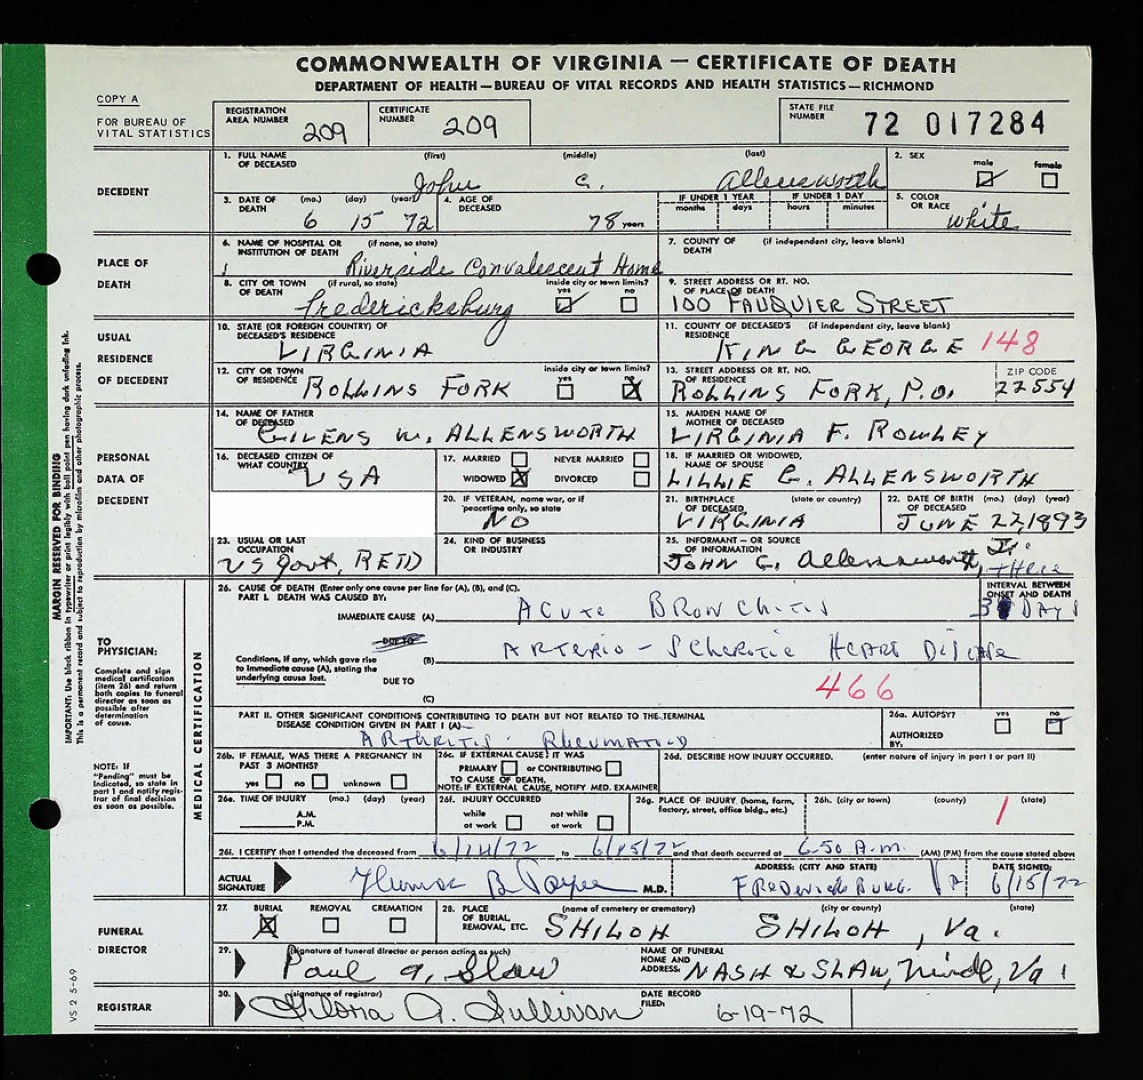 COMMONWEALTH OF VIRGINIA — CERTIFICATE OF DEATH
DEPARTMENT OF HEALTH—BUREAU OF VITAL RECORDS AND HEALTH STATISTICS—RICHMOND
COPY A
FOR BUREAU OF VITAL STATISTICS
REGISTRATION AREA NUMBER 209
CERTIFICATE NUMBER 209
STATE FILE NUMBER 72 017284
DECEDENT
1. FULL NAME OF DECEASED (first) (middle) (last)
John C. Allensworth
2. SEX male female
3. DATE OF DEATH (mo.) (day) (year) 6 15 72
4. AGE OF DECEASED 78 years
IF UNDER 1 YEAR months days
IF UNDER 1 DAY hours minutes
5. COLOR OR RACE white
PLACE OF DEATH
6. NAME OF HOSPITAL OR INSTITUTION OF DEATH (if none, so state)
Riverside Convalescent Home
7. COUNTY OF DEATH (if independent city, leave blank)
8. CITY OR TOWN OF DEATH (if rural, so state) inside city or town limits? yes no
Fredericksburg
9. STREET ADDRESS OR RT. NO. OF PLACE OF DEATH
100 FAUQUIER STREET
USUAL RESIDENCE OF DECEDENT
10. STATE (OR FOREIGN COUNTRY) OF DECEASED'S RESIDENCE
VIRGINIA
11. COUNTY OF DECEASED'S RESIDENCE (if independent city, leave blank)
KING GEORGE 148
12. CITY OR TOWN OF RESIDENCE inside city or town limits? yes no
ROLLINS FORK
13. STREET ADDRESS OR RT. NO. OF RESIDENCE
ROLLINS FORK, P.O.
ZIP CODE 22554
PERSONAL DATA OF DECEDENT
14. NAME OF FATHER OF DECEASED
GIVENS W. ALLENSWORTH
15. MAIDEN NAME OF MOTHER OF DECEASED
VIRGINIA F. ROWLEY
16. DECEASED CITIZEN OF WHAT COUNTRY
USA
17. MARRIED NEVER MARRIED
WIDOWED DIVORCED
18. IF MARRIED OR WIDOWED, NAME OF SPOUSE
LILLIE G. ALLENSWORTH
20. IF VETERAN, name war, or if peacetime only, so state
NO
21. BIRTHPLACE OF DECEASED (state or country)
VIRGINIA
22. DATE OF BIRTH OF DECEASED (mo.) (day) (year)
JUNE 22 1893
23. USUAL OR LAST OCCUPATION
US Govt, RETD
24. KIND OF BUSINESS OR INDUSTRY
25. INFORMANT — OR SOURCE OF INFORMATION
JOHN C. Allensworth, Jr.
MARGIN RESERVED FOR BINDING
IMPORTANT: Use black ribbon in typewriter or print legibly with ball point pen having dark unfading ink.
This is a permanent record and subject to reproduction by microfilm and other photographic process.
TO PHYSICIAN:
Complete and sign medical certification (item 26) and return both copies to funeral director as soon as possible after determination of cause.
NOTE: If "Pending" must be indicated, so state in part 1 and notify registrar of final decision as soon as possible.
MEDICAL CERTIFICATION
26. CAUSE OF DEATH (Enter only one cause per line for (A), (B), and (C).
PART I. DEATH WAS CAUSED BY:
INTERVAL BETWEEN ONSET AND DEATH
IMMEDIATE CAUSE (A) Acute Bronchitis
three
3 Days
DUE TO
Conditions, if any, which gave rise to immediate cause (A), stating the underlying cause last.
(B) Arterio-Sclerotic Heart Disease
DUE TO
(C)
466
PART II. OTHER SIGNIFICANT CONDITIONS CONTRIBUTING TO DEATH BUT NOT RELATED TO THE TERMINAL DISEASE CONDITION GIVEN IN PART I (A)—
Arthritis - Rheumatoid
26a. AUTOPSY? yes no
AUTHORIZED BY:
26b. IF FEMALE, WAS THERE A PREGNANCY IN PAST 3 MONTHS?
yes no unknown
26c. IF EXTERNAL CAUSE, IT WAS
PRIMARY or CONTRIBUTING
TO CAUSE OF DEATH.
NOTE: IF EXTERNAL CAUSE, NOTIFY MED. EXAMINER
26d. DESCRIBE HOW INJURY OCCURRED (enter nature of injury in part I or part II)
26e. TIME OF INJURY (mo.) (day) (year)
A.M.
P.M.
26f. INJURY OCCURRED
while at work not while at work
26g. PLACE OF INJURY (home, farm, factory, street, office bldg., etc.)
26h. (city or town) (county) (state)
1
26i. I CERTIFY that I attended the deceased from 6/14/72 to 6/15/72 and that death occurred at 6:50 A.M. (AM) (PM) from the cause stated above
ACTUAL SIGNATURE Thomas B. Payne M.D.
ADDRESS: (CITY AND STATE) Fredericksburg, Va
DATE SIGNED: 6/15/72
FUNERAL DIRECTOR
27. BURIAL REMOVAL CREMATION
28. PLACE OF BURIAL, REMOVAL, ETC. (name of cemetery or crematory) (city or county) (state)
SHILOH SHILOH, Va.
29. (signature of funeral director or person acting as such)
Paul A. Slaw
NAME OF FUNERAL HOME AND ADDRESS: NASH & SLAW, Ninde, Va
REGISTRAR
30. (signature of registrar)
Gloria A. Sullivan
DATE RECORD FILED: 6-19-72
VS 2 5-69